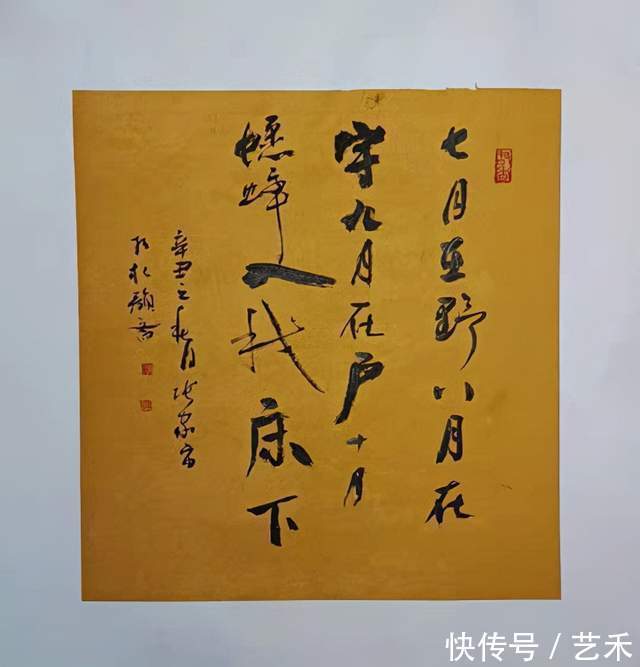 七月在野八月在
宇九月在户十月
蟋蟀入我床下
辛丑之月
於松斋
快传号 / 艺禾